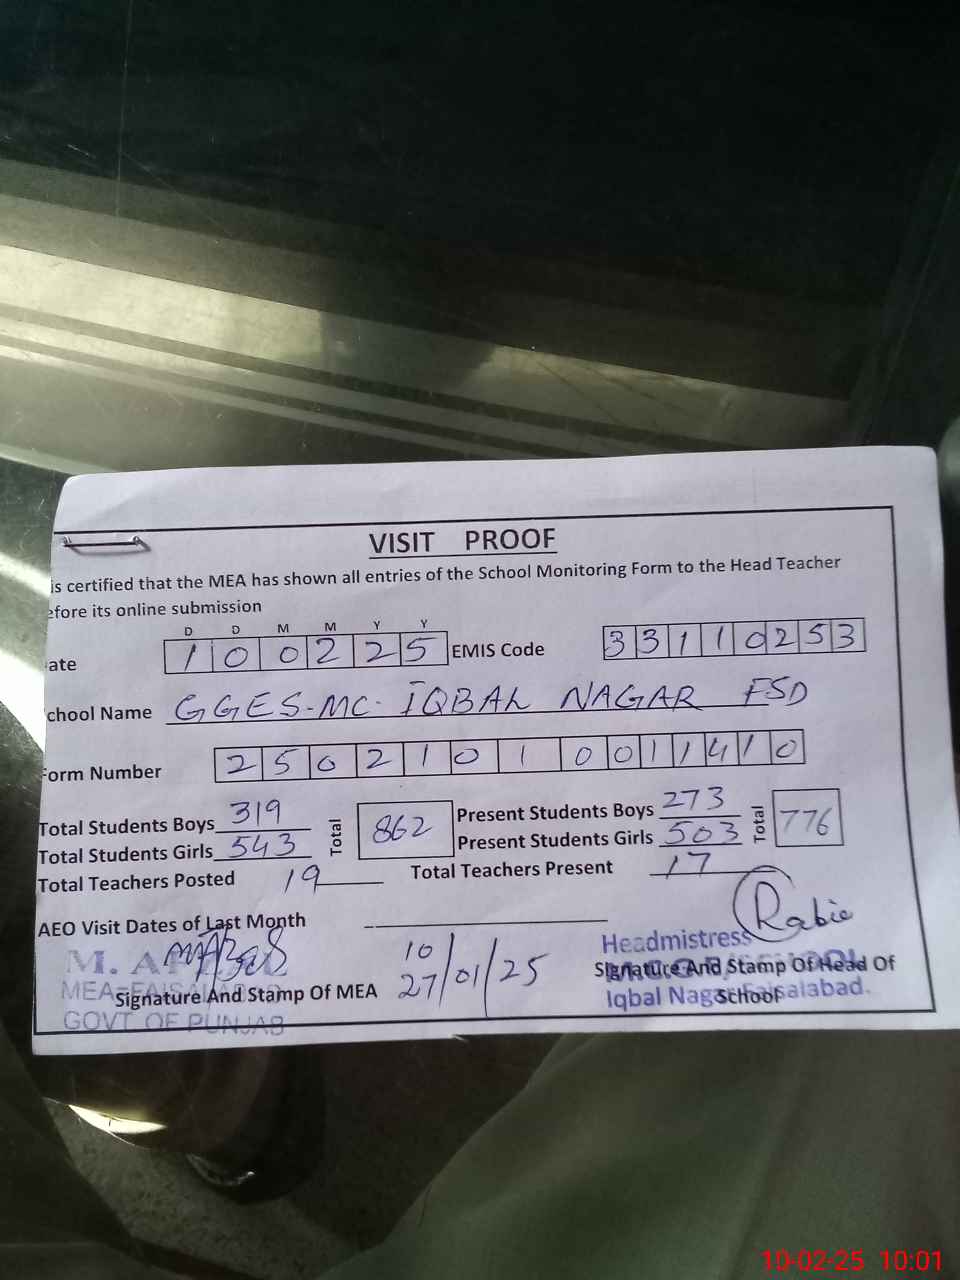 VISIT PROOF
is certified that the MEA has shown all entries of the School Monitoring Form to the Head Teacher
efore its online submission
D D M M Y Y
ate 1 0 0 2 2 5 EMIS Code 3 3 1 1 0 2 5 3
chool Name GGES-MC- IQBAL NAGAR FSD
Form Number 2 5 0 2 1 0 1 0 0 1 1 4 1 0
Total Students Boys 319 Total 862 Present Students Boys 273 Total 776
Total Students Girls 543 Present Students Girls 503
Total Teachers Posted 19 Total Teachers Present 17
AEO Visit Dates of Last Month
Rabia
M.
MEA-FAISALABAD
GOVT OF PUNJAB
Signature And Stamp Of MEA
10
27/01/25
Headmistress
Signature And Stamp Of Head Of
School
Iqbal Nagar Faisalabad.
10-02-25 10:01